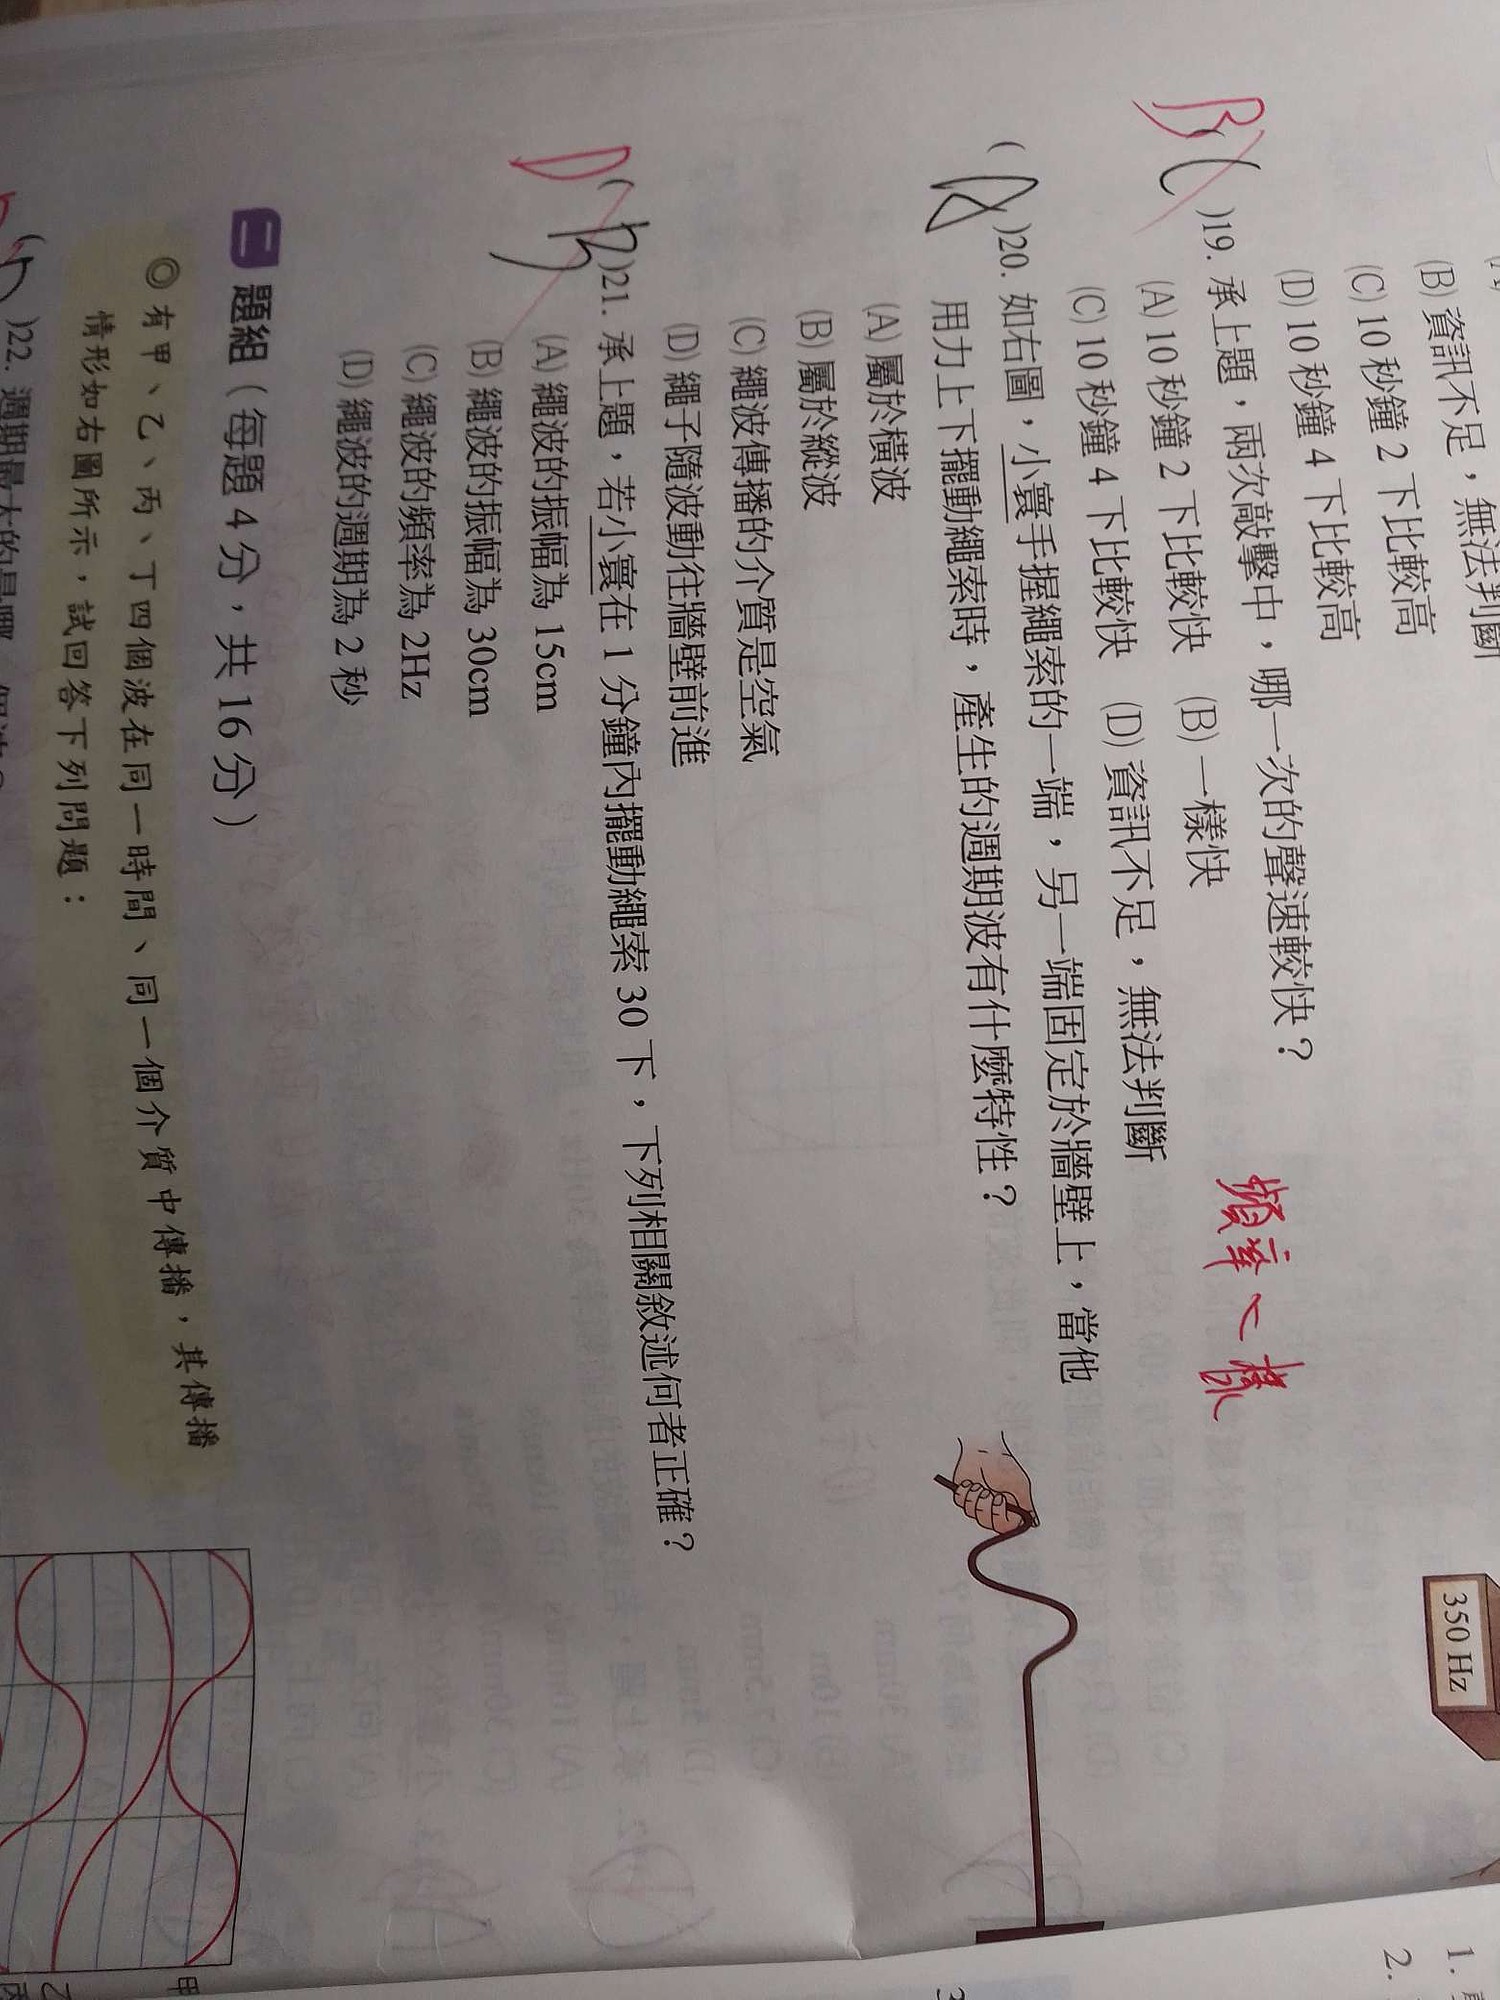 (B) 資訊不足，無法判斷
(C) 10 秒鐘 2 下比較高
(D) 10 秒鐘 4 下比較高
350 Hz
B ( C )19. 承上題，兩次敲擊中，哪一次的聲速較快？
(A) 10 秒鐘 2 下比較快 (B) 一樣快
(C) 10 秒鐘 4 下比較快 (D) 資訊不足，無法判斷
頻率一樣
( A )20. 如右圖，小寰手握繩索的一端，另一端固定於牆壁上，當他
用力上下擺動繩索時，產生的週期波有什麼特性？
(A) 屬於橫波
(B) 屬於縱波
(C) 繩波傳播的介質是空氣
(D) 繩子隨波動往牆壁前進
D ( B )21. 承上題，若小寰在 1 分鐘內擺動繩索 30 下，下列相關敘述何者正確？
(A) 繩波的振幅為 15cm
(B) 繩波的振幅為 30cm
(C) 繩波的頻率為 2Hz
(D) 繩波的週期為 2 秒
二 題組（每題 4 分，共 16 分）
◎ 有甲、乙、丙、丁四個波在同一時間、同一個介質中傳播，其傳播
情形如右圖所示，試回答下列問題：
甲
乙
丙
)22. 週期最大的是哪
1.
2.